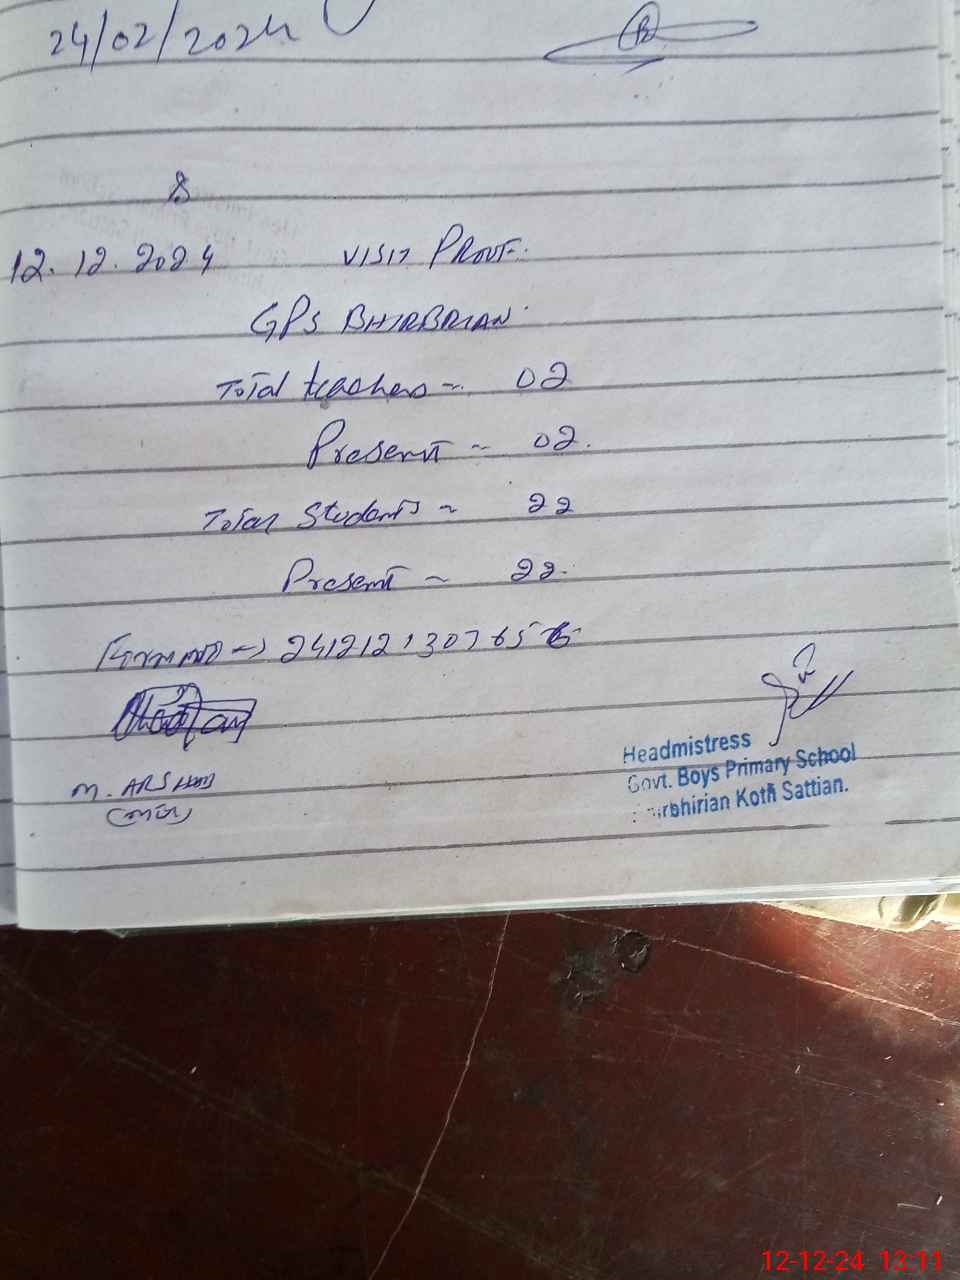 24/02/2024
12.12.2024 VISIT PROOF.
GPS BHIRBRIAN.
Total teachers - 02
Present - 02.
Total Students - 22
Present - 22.
M. ARSHAD
Headmistress
Govt. Boys Primary School
Kotli Sattian.
12-12-24 13:11